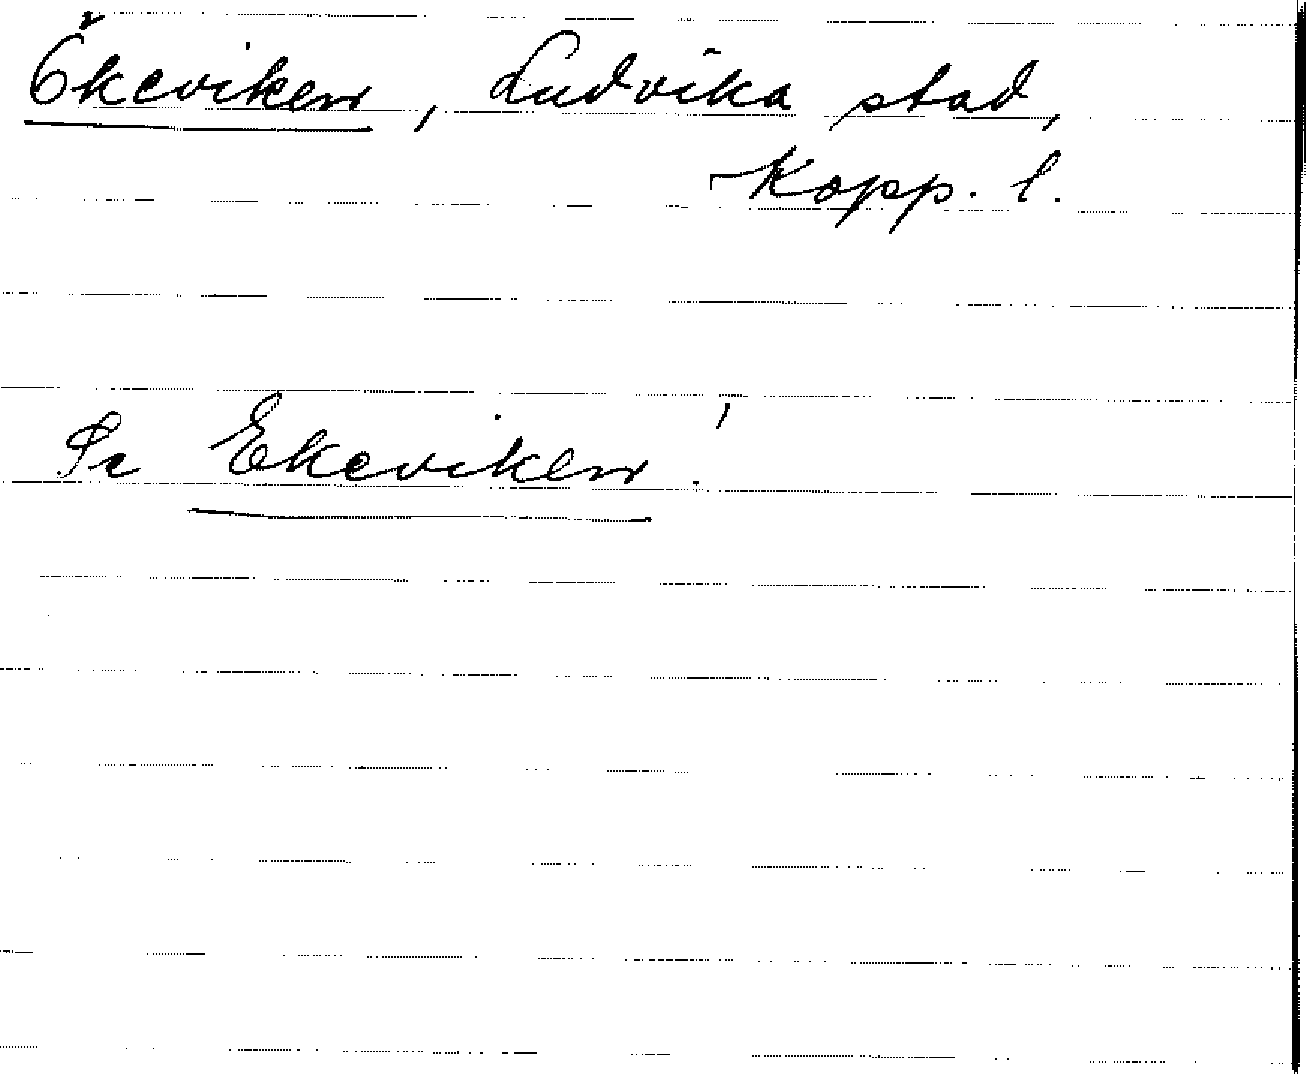 Ökeviken, Ludvika stad,
Kopp. l.
Se Ekeviken!